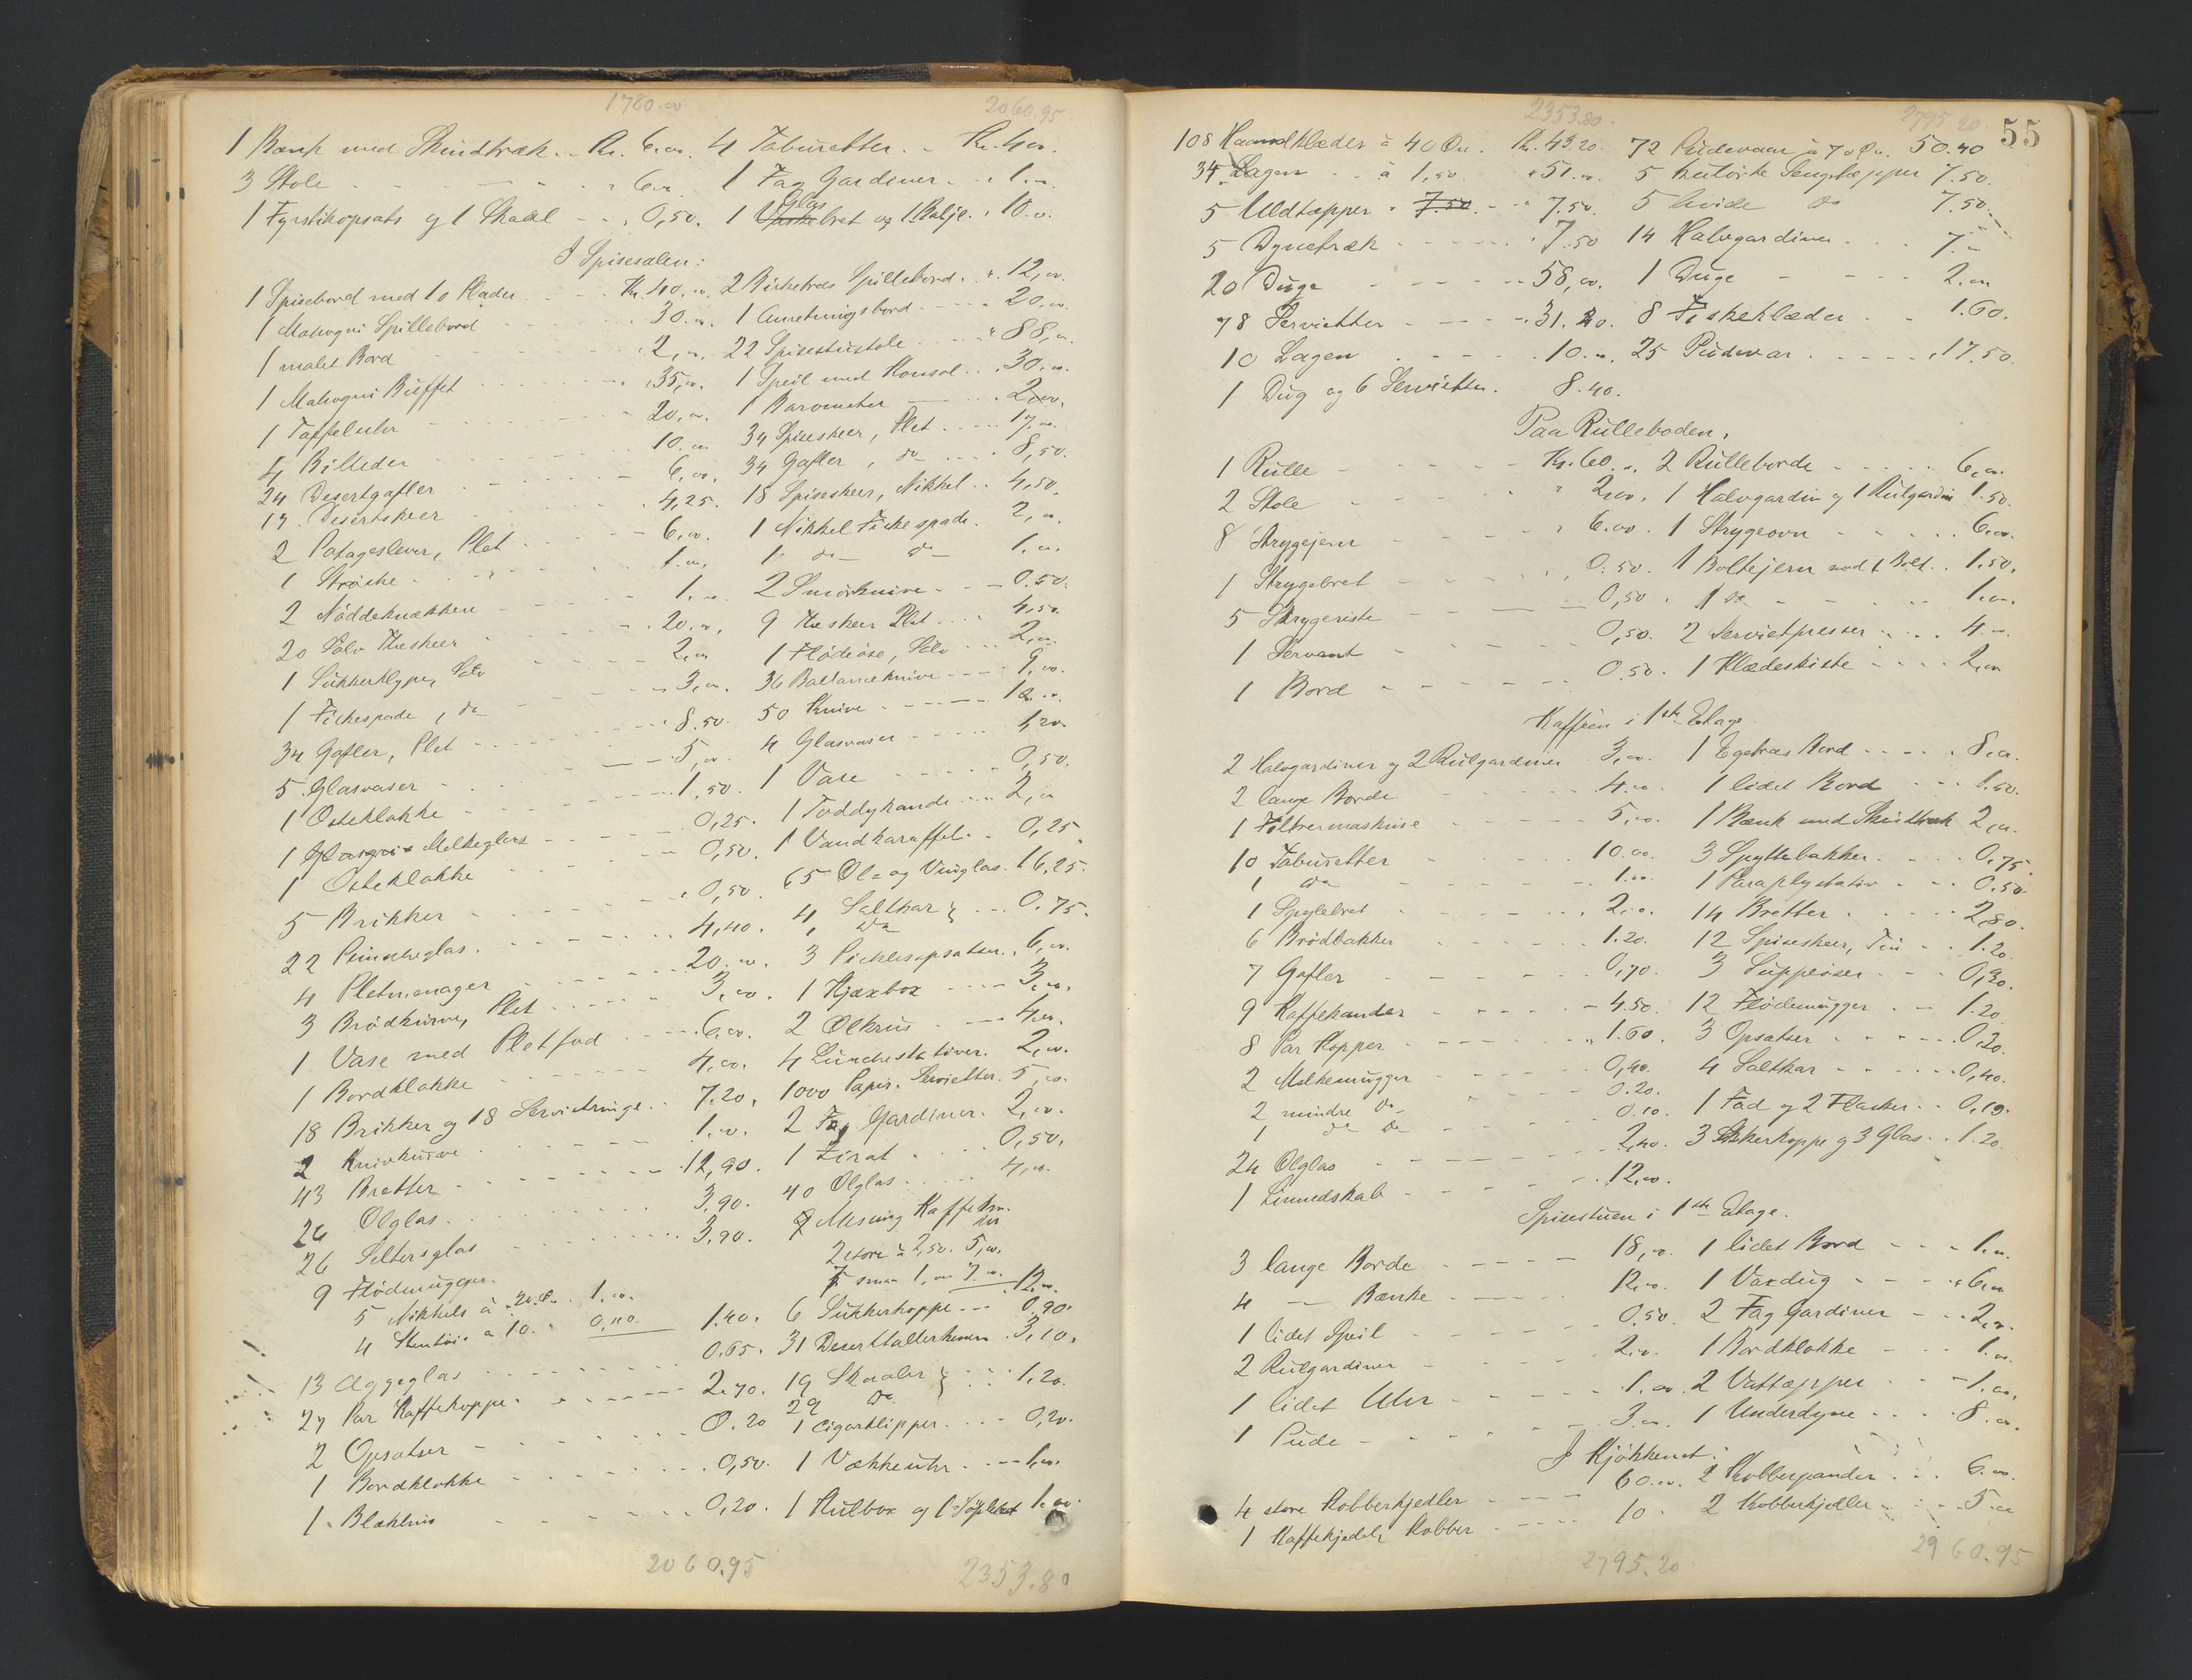 1780.00 2060.95
1 Bænk med Skindtræk. - Kr. 6.00. 4 Taburetter. - Kr. 4.00.
3 Stole - - - - " 6.00 1 Fag Gardiner - - " 1.00.
1 Fyrstikopsats og 1 Skaal - - " 0,50. 1 Glasbret og 1 Balje. " 10.00.
I Spisesalen:
1 Spisebord med 10 Plader - - - Kr. 40.00. 2 Birketræs Spillebord. " 12,00.
1 Mahogni Spillebord - - - 30.00. 1 Anretningsbord - - - 20,00.
1 malet Bord - - - 2,00. 22 Spisestustole - - - " 88,00.
1 Mahogni Büffet - - - 35,00. 1 Speil med Konsol - - 30.00.
1 Taffeluhr - - - 20,00. 1 Barometer - - - 2,00.
4 Billeder - - - 10.00 34 Spiseskeer, Plet - - - 17,00.
24 Desertgafler - - - 6,00, 34 Gafler, do - - - 8,50.
17 Desertskeer - - - 4,25. 18 Spiseskeer, Nikkel - - 4,50.
2 Potageslever, Plet - - - 6,00. 1 Nikkel Fiskespade. 2,00.
1 Strøske - - - 1.00, 1 do do 1,00.
2 Nöddeknækkere - - - 1.00 2 Smörknive - - - 0.50.
20 Sölv Theskeer - - - 20.00, 9 Theskeer Plet - - - 4,50.
1 Sukkerklype, Sölv - - - 2,00 1 Flödeöse, Sölv - - - 2,00.
1 Fiskespade, do - - - 3,00. 36 Ballanceknive - - - 9,00.
34 Gafler, Plet - - - 8.50. 50 Knive - - - 12.00.
5 Glasvaser - - - 5,00. 4 Glasvaser - - - 1,20.
1 Osteklokke - - - 1,50. 1 Vase - - - 0,50.
1 Melkeglas - - - 0,25. 1 Toddykande - - - 2,00
1 Osteklokke - - - 0,50. 1 Vandkaraffel. - 0,25.
5 Brikker - - - 0,50. 65 Öl= og Vinglas. 16,25.
22 Punscheglas - - - 4,40. 4 Saltkar } - - - 0.75.
1 do
4 Pletmenager - - - 20.00. 3 Picklesopsatser. 6,00.
3 Brödkurve, Plet - - - 3,00. 1 Kjæxbox - - - 3,00.
1 Vase med Pletfod - - - 6,00. 2 Ölkrus - - - 4,00.
1 Bordklokke - - - 4,00. 4 Lunchestativer. 2,00.
18 Brikker og 18 Servietringe - - 7.20, 1000 Papir. Servietter. 5,00.
2 Knivkurve - - - 1.00. 2 Fag Gardiner. 2,00.
43 Bretter - - - 12,90. 1 Zirat - - - 0,50.
26 Ölglas - - - 3.90. 40 Ölglas - - - 4,00.
26 Seltersglas - - - 3.90. 9 Messing Kaffekan.
ner
9 Flödemugger
2 store à 2,50. 5,00.
5 Nikkels à 20 Ö. 1,00. 7 smaa 1,00 7.00. 12,00.
4 Stentöi à 10. " 0,40. 1.40. 6 Sukkerkoppe - - 0.90.
13 Æggeglas - - - 0.65. 31 Deserttallerkener 3,10.
27 Par Kaffekoppe - - - 2.70. 19 Skaaler } - - - 1,20.
29 do
2 Opsatser - - - 0.20 1 Cigarklipper - - - 0,20.
1 Bordklokke - - - 0,50. 1 Vækkeuhr - - - 1,00.
1 Blækhus - - - 0,20. 1 Kulbox og 1 1,00.
2060,95 2353.80
2353.80 2795.20 55
108 Haandklæder à 40 Öre. Kr. 43.20. 72 Pudevaar à 70 Ör. 50.40
34 Lagen - - à 1,50. " 51.00. 5 kulörte Sengetæpper 7.50.
5 Uldtæpper " 7.50 - " 7.50. 5 hvide do 7.50.
5 Dynetræk - - - 7.50 14 Halvgardiner - - - 7.-
20 Duge - - - 58,00. 1 Duge - - - 2.00
78 Servietter - - - 31.20. 8 Fiskeklæder - - 1.60.
10 Lagen - - - 10.00. 25 Pudevar - - - 17.50.
1 Dug og 6 Servietter. 8.40.
Paa Rulleboden.
1 Rulle - - - Kr. 60.00. 2 Rulleborde - - - 6,00.
2 Stole - - - " 2,00. 1 Halvgardin og 1 Rulgardin 1.50.
8 Strygejern - - - " 6.00. 1 Strygeovn - - - 6.00.
1 Strygebret - - - 0.50. 1 Boltejern med 1 Bolt. - 1.50.
5 Strygeriste - - - 0,50. 1 do - - - 1.00.
1 Servant - - - 0,50. 2 Servietpresser - - - 4.00.
1 Bord - - - 0.50. 1 Klædeskiste - - - 2,00
Kaffeen i 1ste Etage.
2 Halvgardiner og 2 Rulgardiner 3,00. 1 Egetræs Bord - - - 8,00.
2 lange Borde - - - 4.00. 1 lidet Bord - - - 1.50.
1 Filtrermaskine - - - 5,00. 1 Bænk med Skindtræk 2,00.
10 Taburetter - - - 10.00. 3 Spyttebakker - - - 0,75.
1 do - - - 1.00. 1 Paraplystativ - - - 0.50
1 Spylebret - - - 2,00. 14 Bretter - - - 2,80.
6 Brödbakker - - - 1.20. 12 Spiseskeer, Tin - - 1.20.
7 Gafler - - - 0,70. 3 Suppeöser - - - 0,30.
9 Kaffekander - - - 4.50. 12 Flödemugger - - - 1.20
8 Par Kopper - - - 1.60. 3 Opsatser - - - 0,30.
2 Melkemugger - - - 0,40. 4 Saltkar - - - 0,40.
2 mindre do - - - 0.20.
1 do do - - - 0.10. 1 Fad og 2 Flasker - - 0,10.
24 Ölglas - - - 2,40. 3 Sukkerkoppe og 3 Glas. - 1.20.
1 Linnedskab - - - 12,00.
Spisestuen i 1ste Etage.
3 lange Borde - - - 18,00. 1 lidet Bord - - - 1.00.
4 — Bænke - - - 12,00. 1 Vaxdug - - - 6,00
1 lidet Speil - - - 0.50. 2 Fag Gardiner - - - 2,00.
2 Rulgardiner - - - 2.00. 1 Bordklokke - - - 1.00.
1 lidet Uhr - - - 1,00. 2 Vattæpper - - - 1.00.
1 Pude - - - 3.00. 1 Underdyne - - - 8.00.
I Kjökkenet:
4 store Kobberkjedler - - - 60.00. 2 Kobberpander - - - 6.00.
1 Kaffekjedel, Kobber - - - 10. 2 Kobberkjedler - - - 5.00
2795.20 2960.95